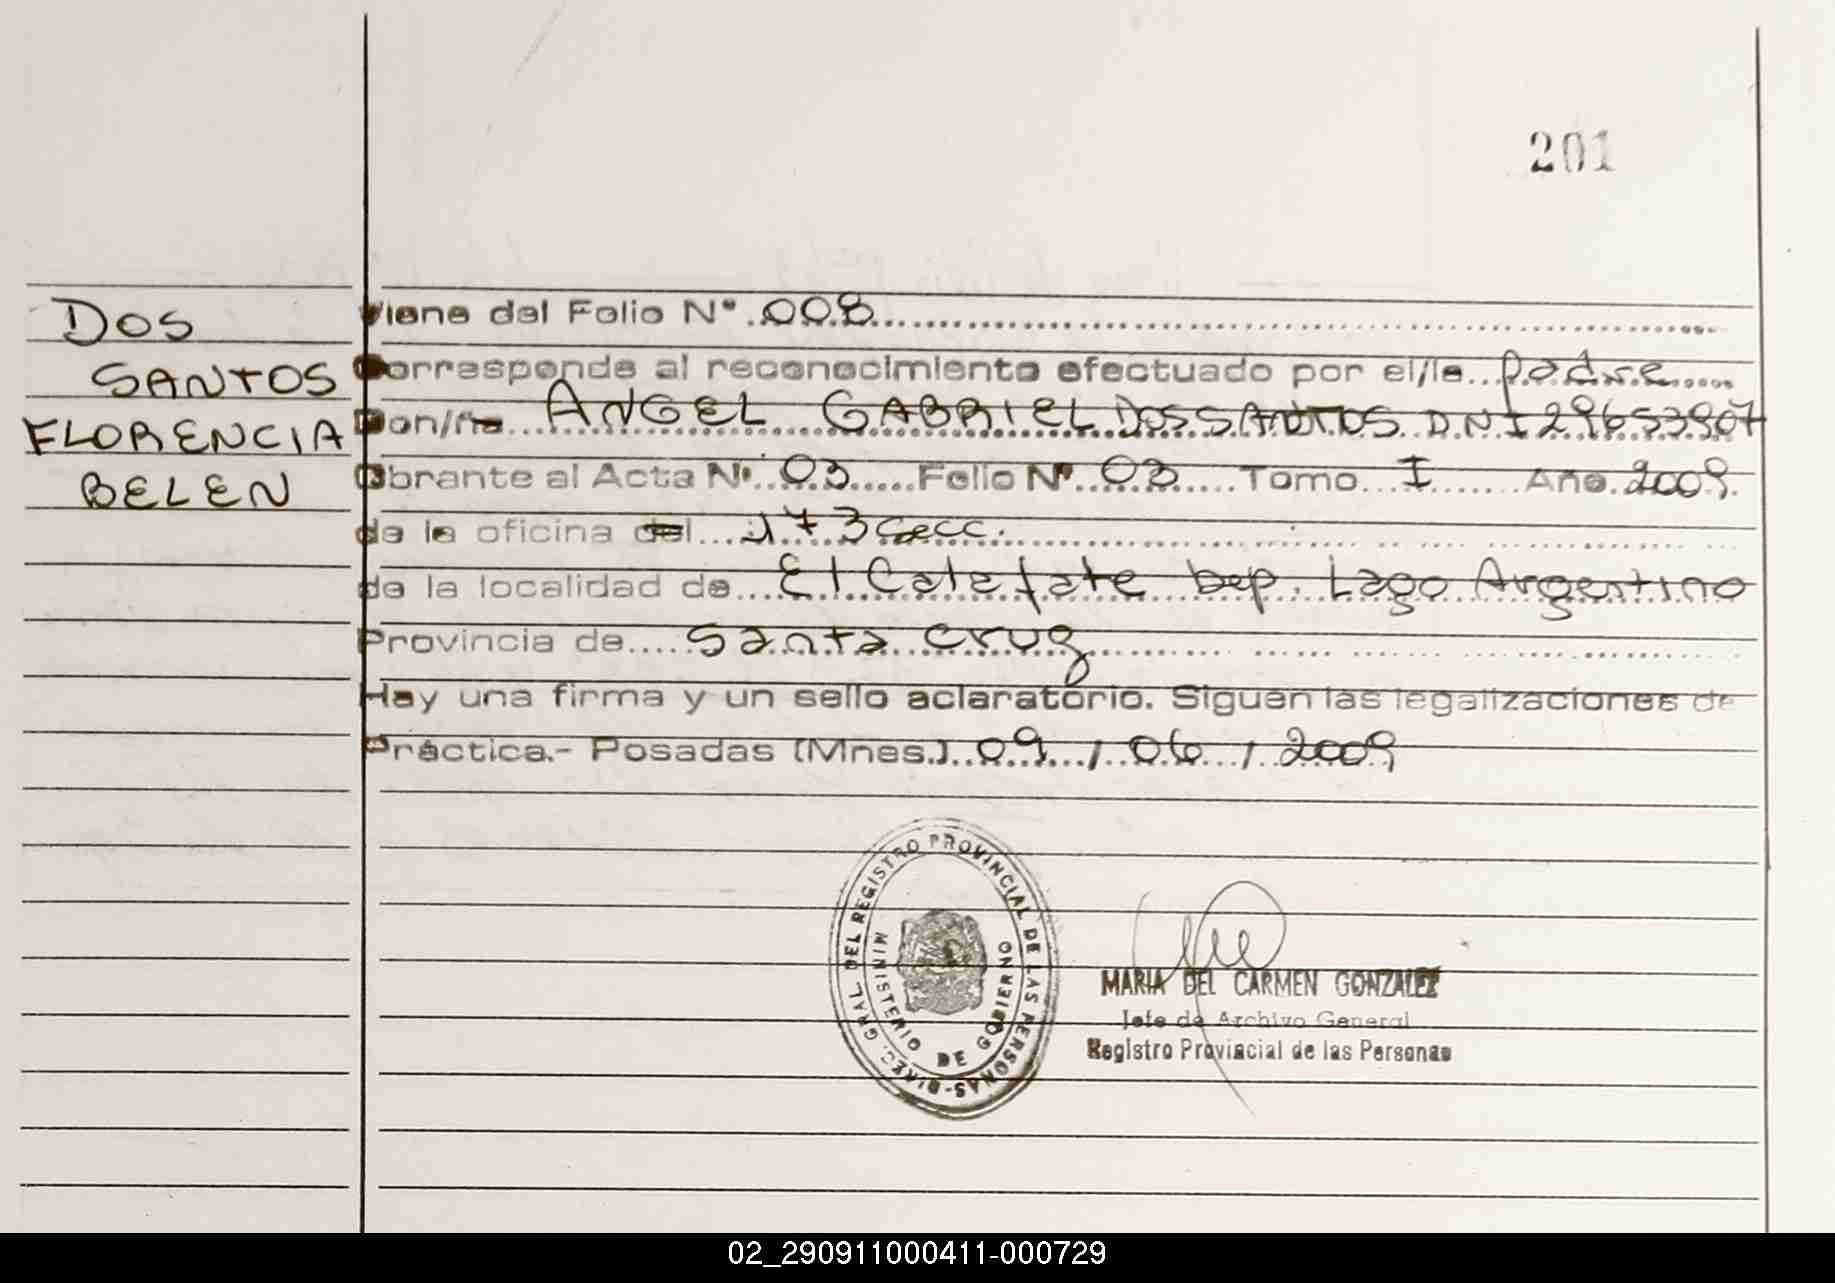 201
DOS
SANTOS
FLORENCIA
BELEN
Viene del Folio N° 008
Corresponde al reconocimiento efectuado por el/la Padre
Don/ña ANGEL GABRIEL DOS SANTOS DNI 29653907
Obrante al Acta N° 03 Folio N° 03 Tomo I Año 2009
de la oficina del 173 Secc.
de la localidad de El Calafate Dep. Lago Argentino
Provincia de Santa Cruz
Hay una firma y un sello aclaratorio. Siguen las legalizaciones de
Práctica.- Posadas (Mnes.) 09 / 06 / 2009
DIREC. GRAL. DEL REGISTRO PROVINCIAL DE LAS PERSONAS-
MINISTERIO DE GOBIERNO
MARIA DEL CARMEN GONZALEZ
Jefe de Archivo General
Registro Provincial de las Personas
02_290911000411-000729